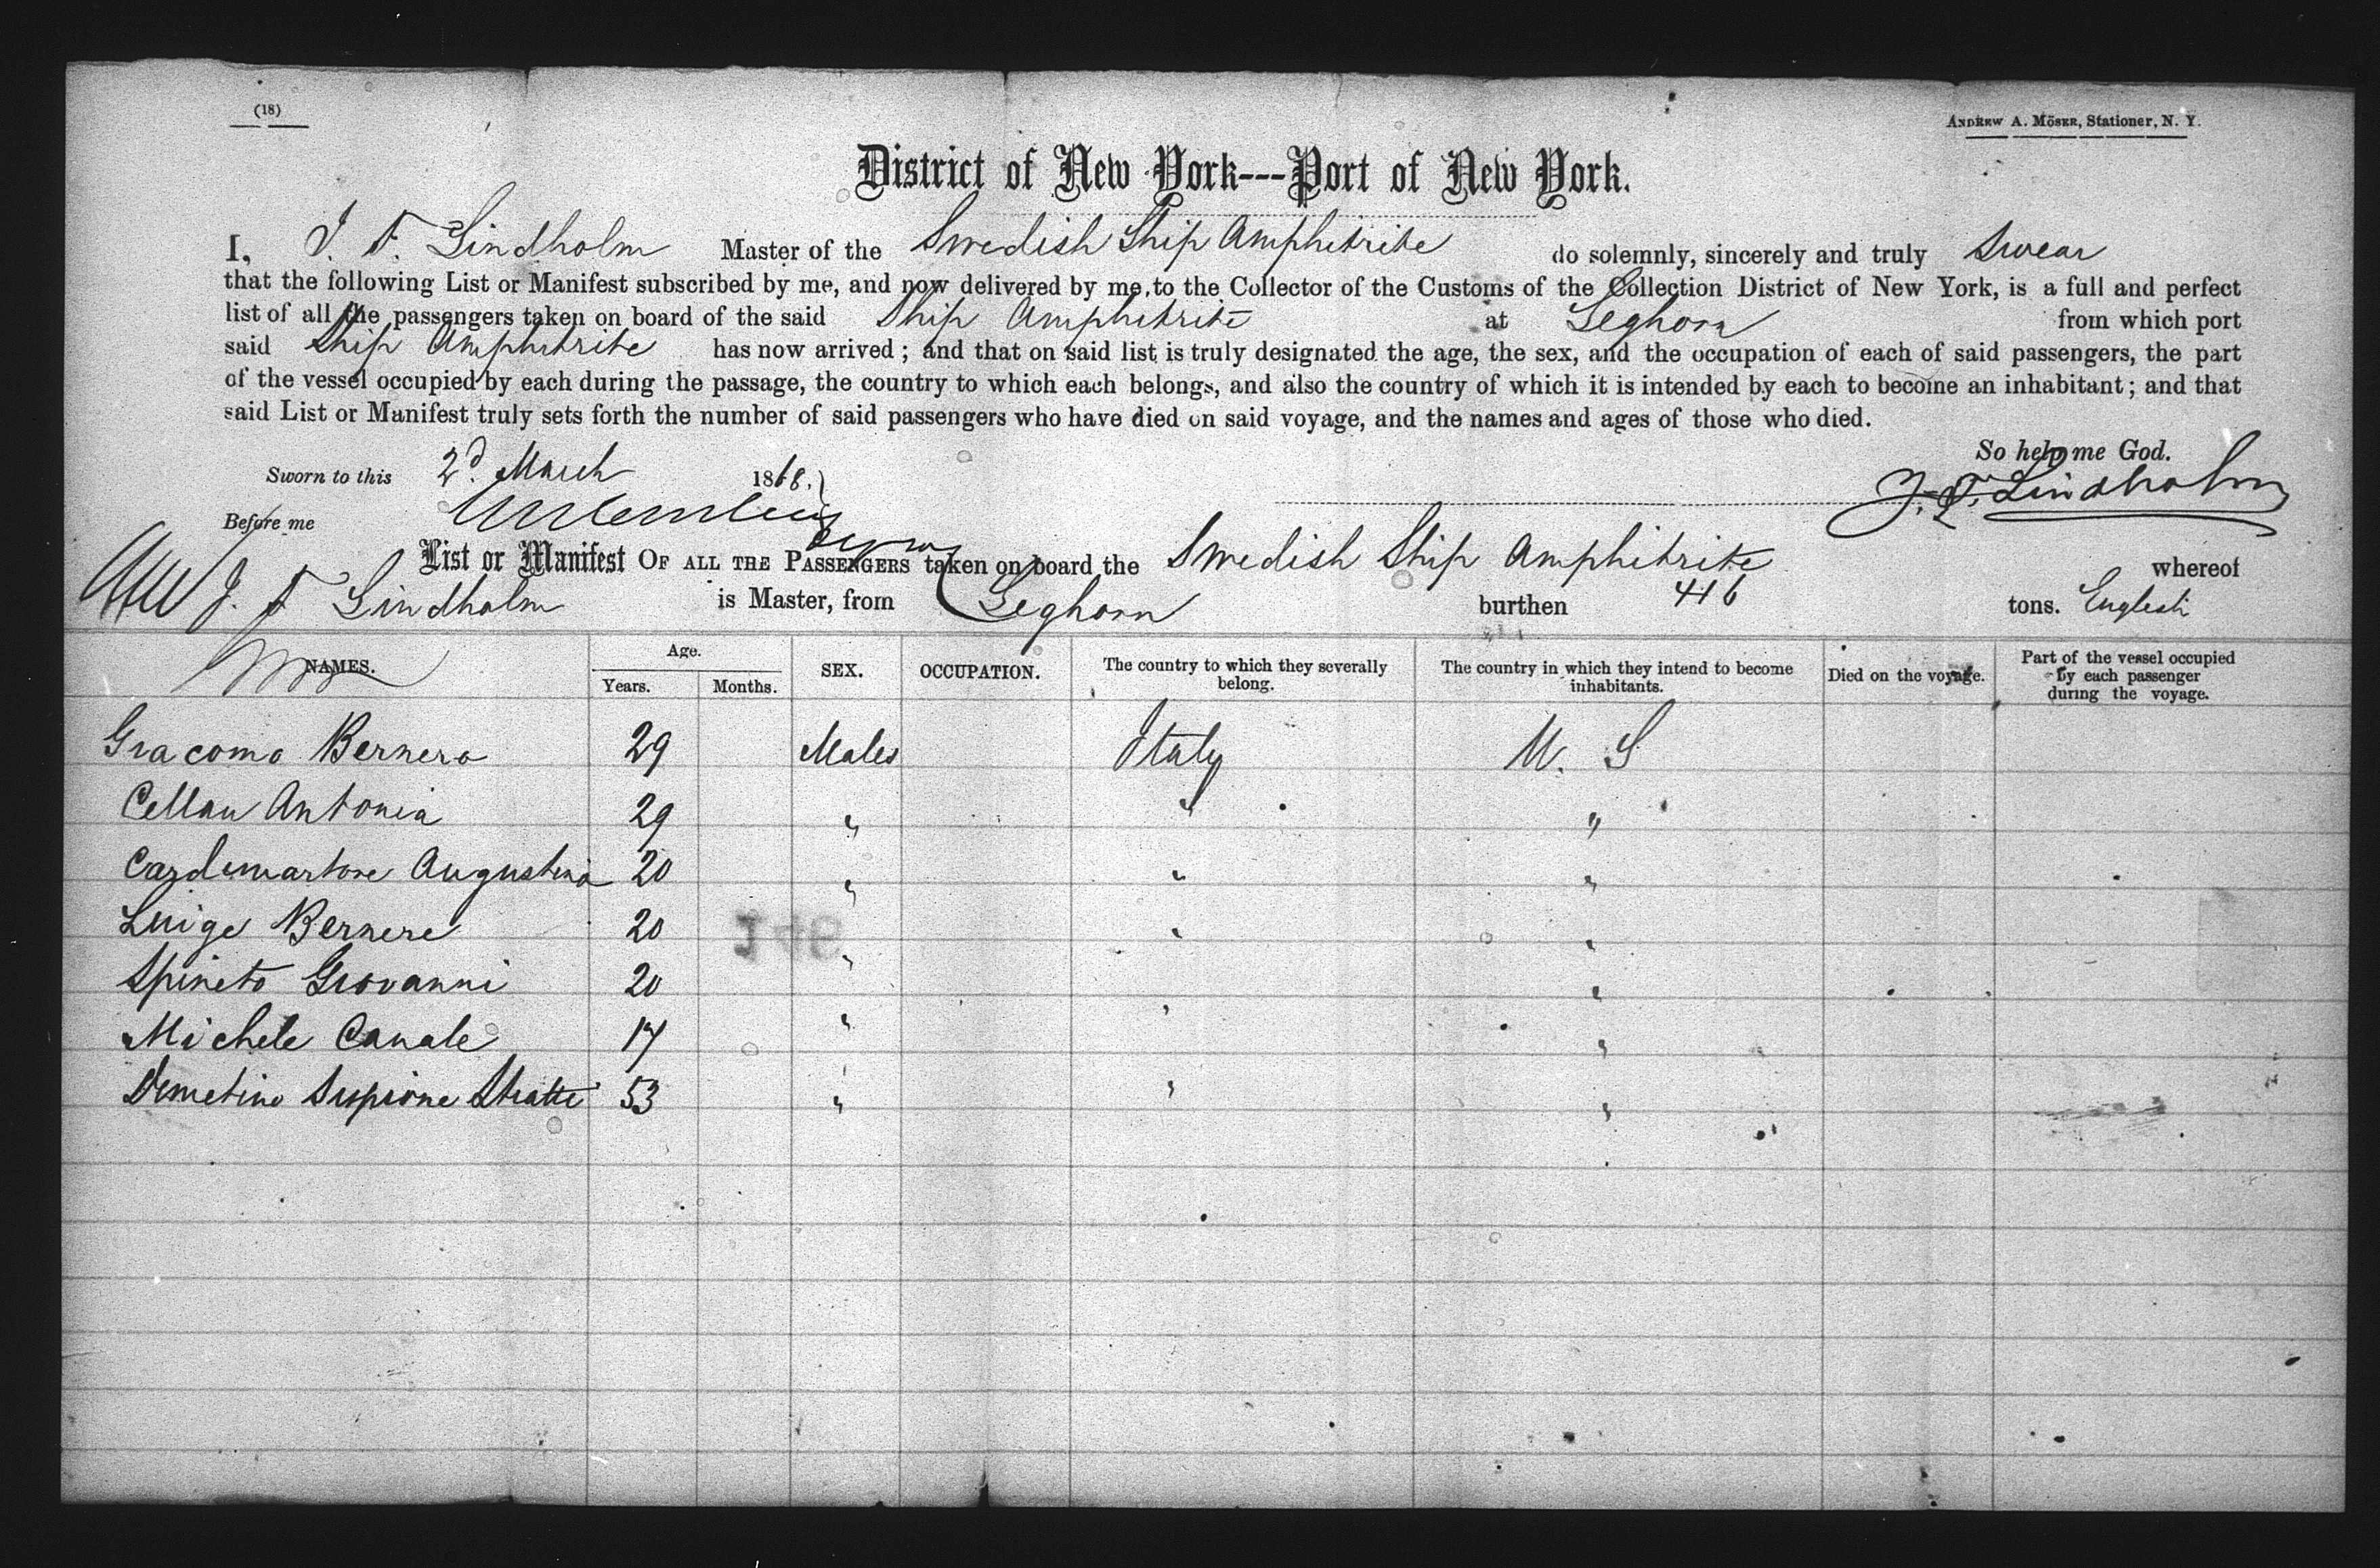 (18)
Andrew A. Möser, Stationer, N. Y.
District of New York---Port of New York.
I, J. F. Lindholm Master of the Swedish Ship Amphitrite do solemnly, sincerely and truly swear
that the following List or Manifest subscribed by me, and now delivered by me, to the Collector of the Customs of the Collection District of New York, is a full and perfect
list of all the passengers taken on board of the said Ship Amphitrite at Leghorn from which port
said Ship Amphitrite has now arrived; and that on said list is truly designated the age, the sex, and the occupation of each of said passengers, the part
of the vessel occupied by each during the passage, the country to which each belongs, and also the country of which it is intended by each to become an inhabitant; and that
said List or Manifest truly sets forth the number of said passengers who have died on said voyage, and the names and ages of those who died.
So help me God.
Sworn to this 2d. March 1868.
J. F. Lindholm
Before me
List or Manifest OF ALL THE PASSENGERS taken on board the Swedish Ship Amphitrite whereof
J. F. Lindholm is Master, from Leghorn burthen 416 tons. English
NAMES. Age. Years. Months. SEX. OCCUPATION. The country to which they severally belong. The country in which they intend to become inhabitants. Died on the voyage. Part of the vessel occupied by each passenger during the voyage.
Giacomo Bernero 29 Males Italy U. S
Cellau Antonia 29 " " "
Cardemartore Augustino 20 " " "
Luige Bernere 20 " " "
Spineto Giovanni 20 " " "
Michele Canale 17 " " "
Demetino Supione Stratti 53 " " "